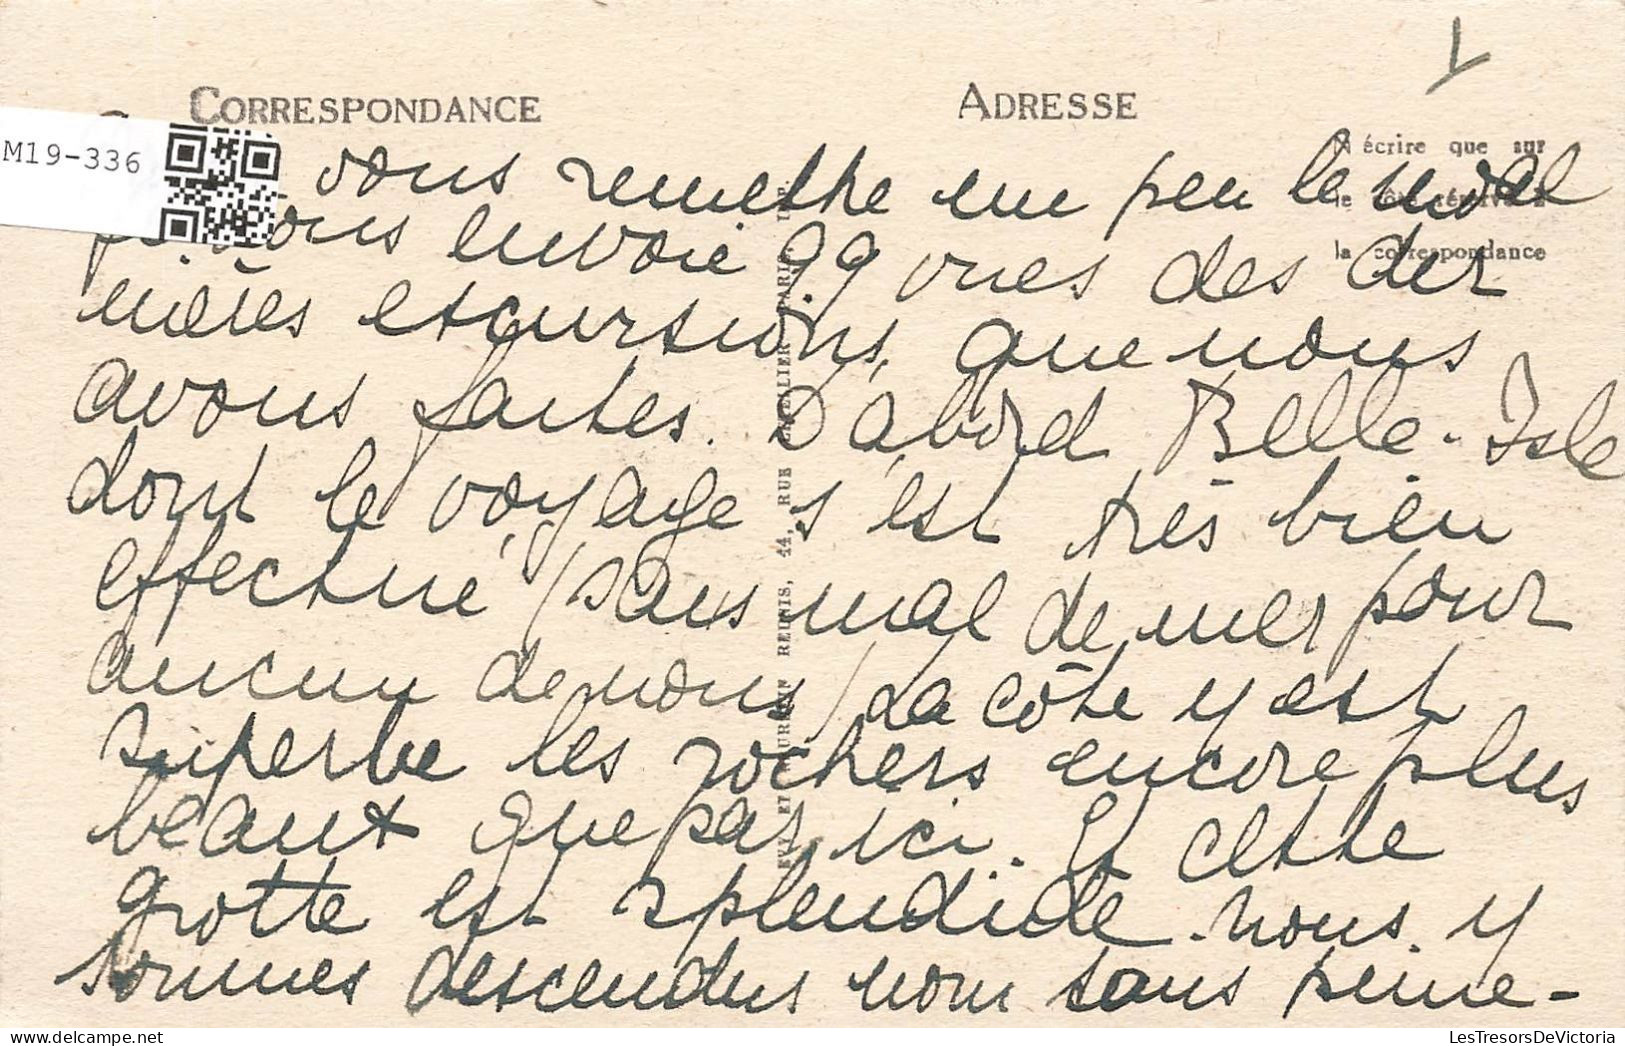 CORRESPONDANCE
ADRESSE
N'écrire que sur
le côté réservé à
la correspondance
M19-336
vous remettre un peu le moral
je vous envoie qq vues des der
nières excursions, que nous
avons faites. D'abord Belle-Isle
dont le voyage s'est très bien
effectué (sans mal de mer pour
aucun de nous) La côte y est
superbe les rochers encore plus
beaux que par ici. Et cette
grotte est splendide. nous y
sommes descendus non sans peine-
RÉUNIS, 44, RUE
LesTresorsDeVictoria.com